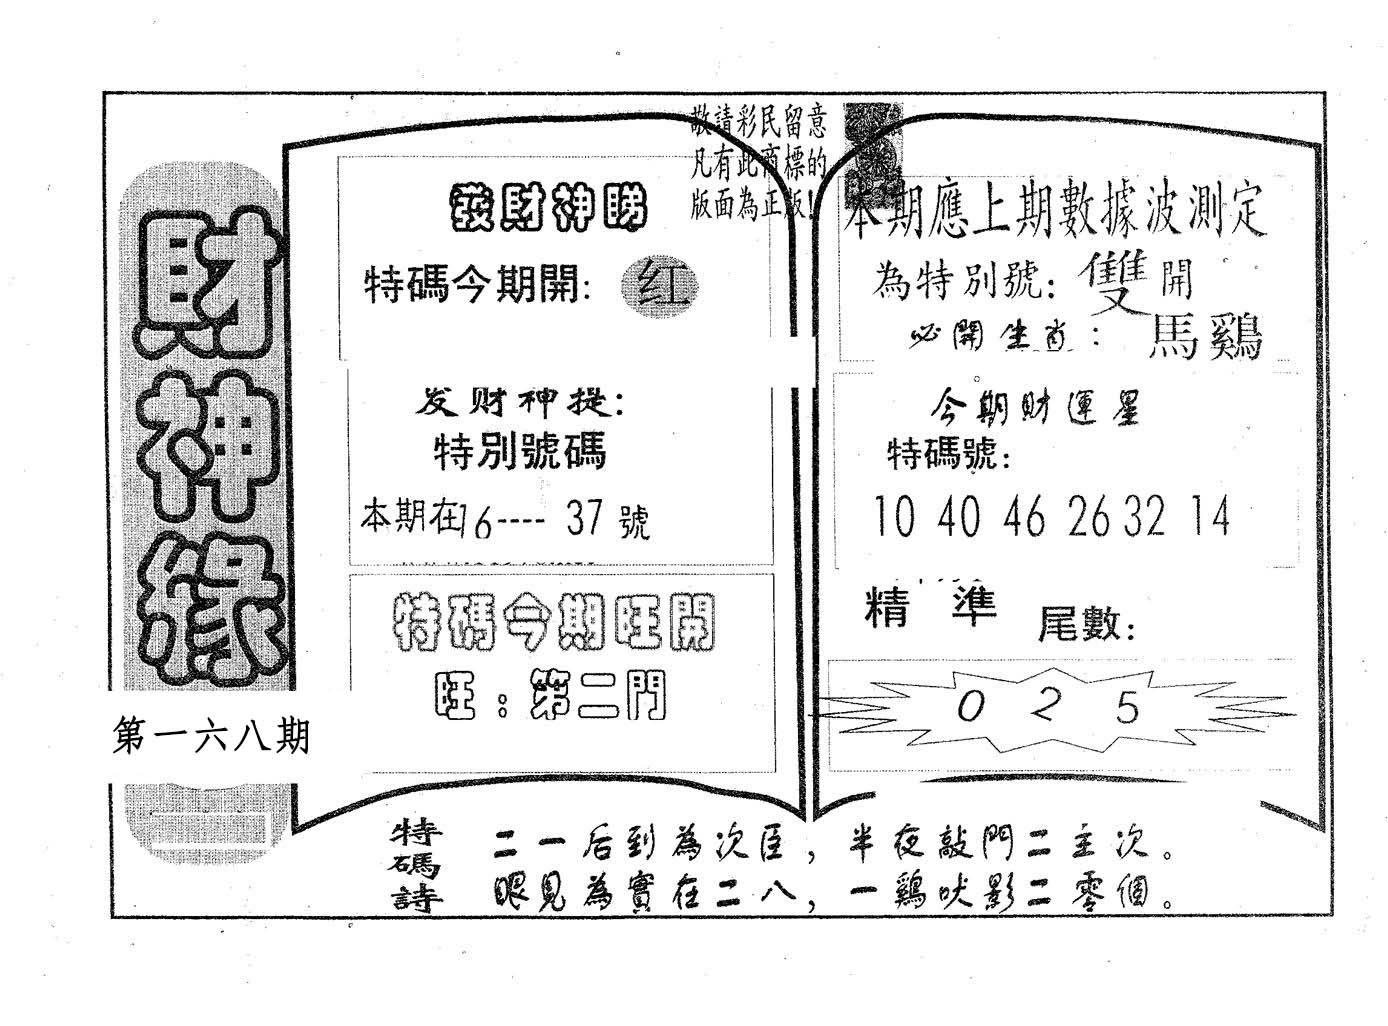 財神緣
第一六八期
敬請彩民留意
凡有此商標的
版面為正版!
發財神睇
特碼今期開: 红
发财神提:
特別號碼
本期在16---- 37號
特碼今期旺開
旺: 第二門
本期應上期數據波測定
為特別號: 雙開
必開生肖: 馬鷄
今期財運星
特碼號:
10 40 46 26 32 14
精 準 尾數:
0 2 5
特碼詩
二一后到為次臣, 半夜敲門二主次。
眼見為實在二八, 一鷄吠影二零個。